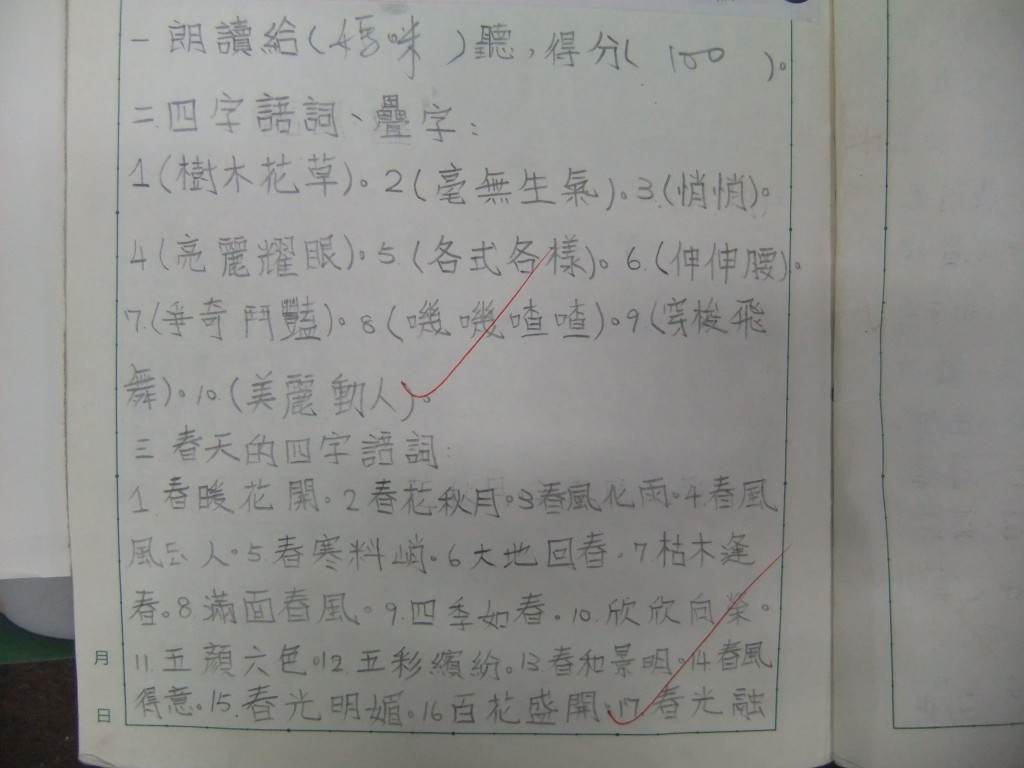 一朗讀給(媽咪)聽,得分(100)。
二四字語詞、疊字:
1(樹木花草)。2(毫無生氣)。3.(悄悄)。
4(亮麗耀眼)。5.(各式各樣)。6.(伸伸腰)。
7.(爭奇鬥豔)。8(嘰嘰喳喳)。9.(穿梭飛
舞)。10.(美麗動人)。
三春天的四字語詞:
1.春暖花開。2春花秋月。3春風化雨。4.春風
風人。5.春寒料峭。6大地回春.7枯木逢
春。8.滿面春風。9.四季如春。10.欣欣向榮。
11.五顏六色。12.五彩繽紛。13春和景明。14.春風
得意。15.春光明媚。16百花盛開.17.春光融
月
日